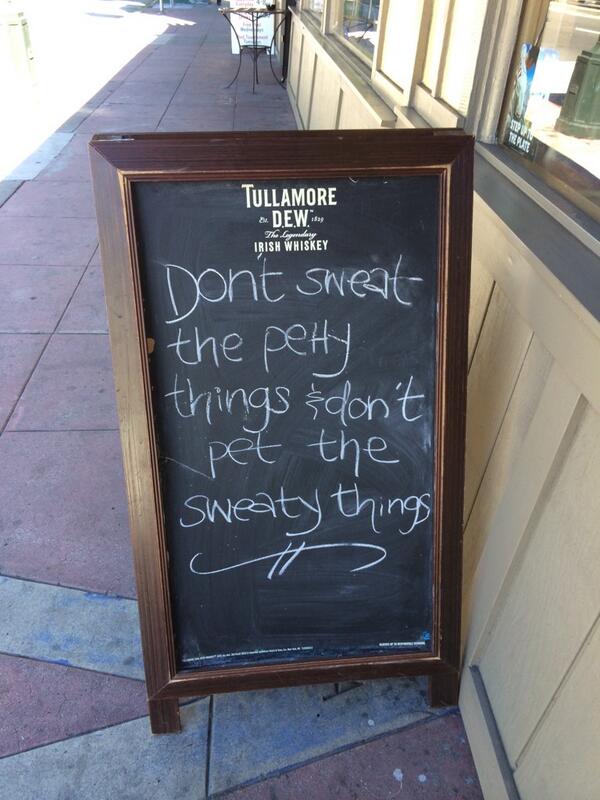 TULLAMORE
Est. D.E.W.™ 1829
The Legendary
IRISH WHISKEY
Don't sweat
the petty
things & don't
pet the
sweaty things
STEP UP TO
THE PLATE